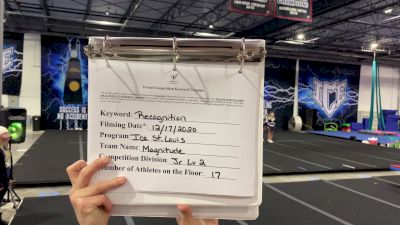 Virtual Competition Keyword Template
Keyword: Recognition
Filming Date*: 12/17/2020
Program: Ice St. Louis
Team Name: Magnitude
Competition Division: Jr. Lv 2
Number of Athletes on the Floor: 17
ICE
SUCCESS IS
NO ACCIDENT